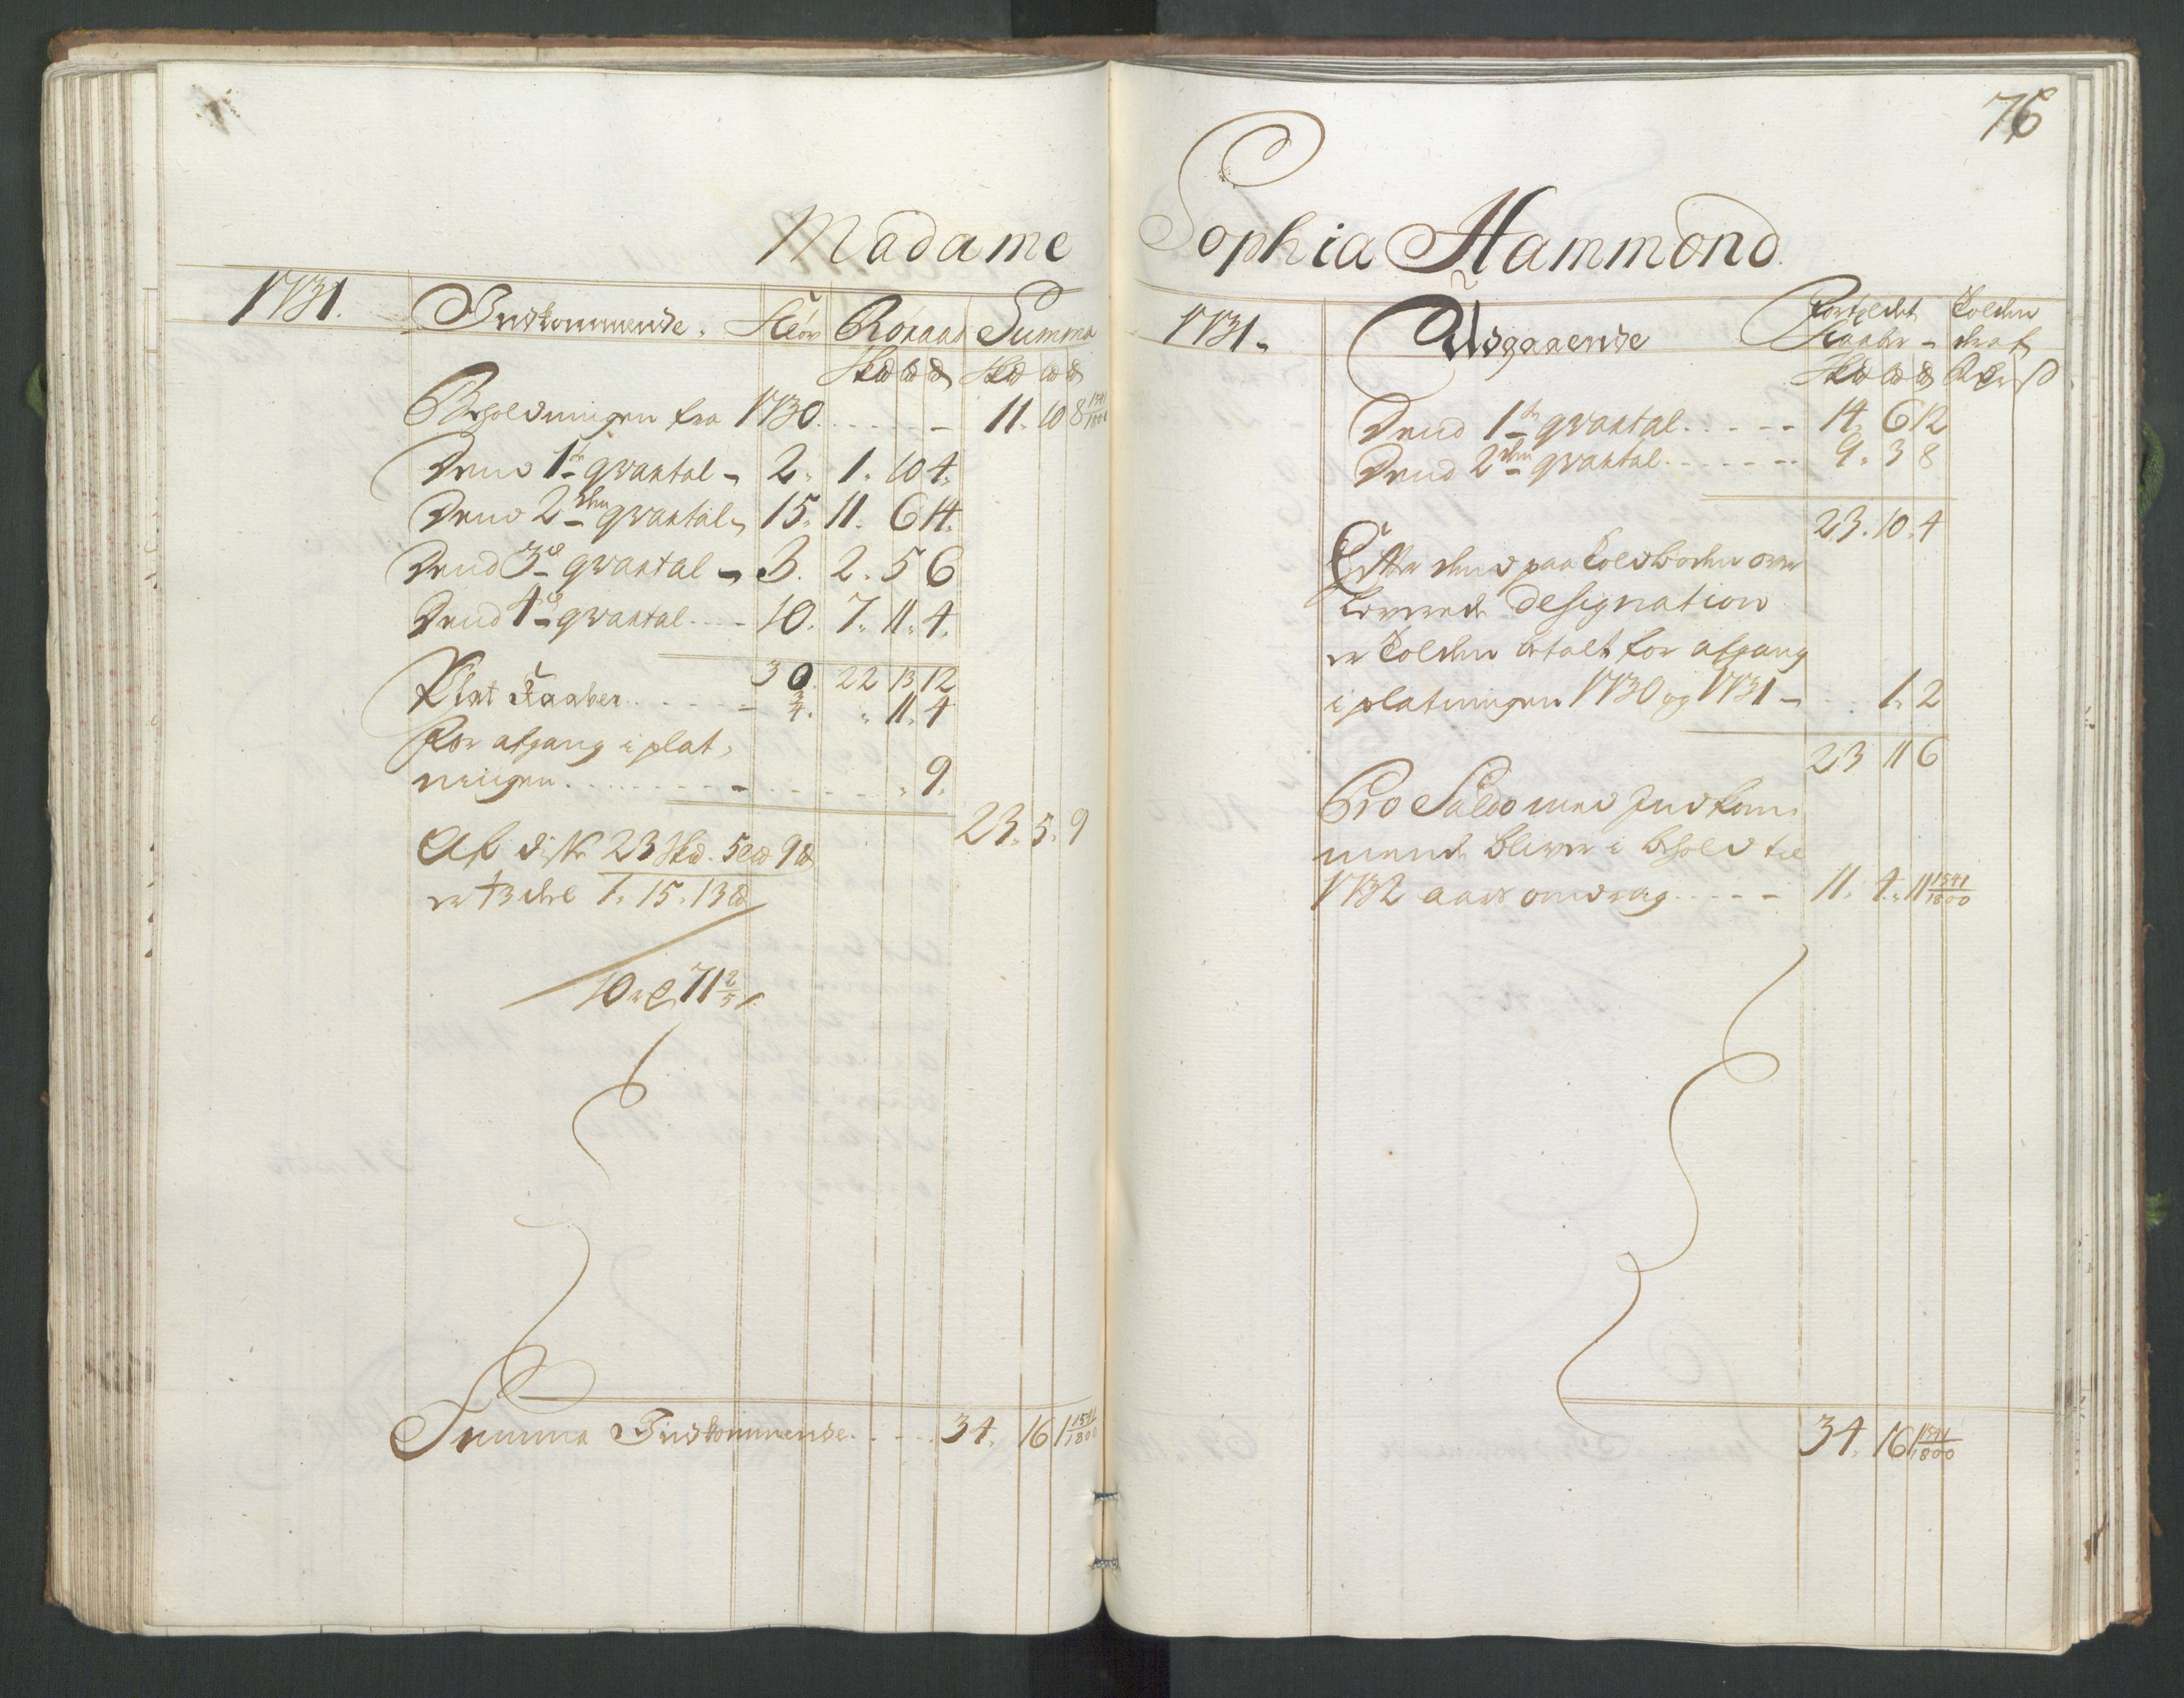 76
Madame Sophia Hammond.
1731. Indkommende. Støv Råkaab Summa
Skd Ld d Skd Ld d
Beholdningen fra 1730. 11. 10 8 1541/1800
Dend 1te qvartal 2. 1. 10 4.
Dend 2den qvartal 15. 11. 6 14.
Dend 3e qvartal 3. 2. 5 6
Dend 4e qvartal 10. 7. 11. 4.
30. 22 13 12
Plat Kaaber 3/4. " 11. 4
For afgang i plat,
ningen " 9.
23. 5. 9
Af disse 23 Skd. 5 Ld 9 d
er 1/3 deel 7. 15. 13 d
10 rd 71 2/5 s
Summa Indkommende 34. 16 1 1541/1800
1731. Udgaaende Fortoldet Kaaber Tolden deraf
Skd Ld d Rd s
Dend 1te qvartal 14. 6 12
Dend 2den qvartal 9. 3 8
23. 10. 4
Efter dend paa Toldboden over
leverede Designation
er Tolden betalt for afgang
i platningen 1730 og 1731 1. 2
23 11 6
Pro Saldo med Indkom,
mende bliver i behold til
1732 aars omdrag 11. 4. 11 1541/1800
34. 16 1 1541/1800